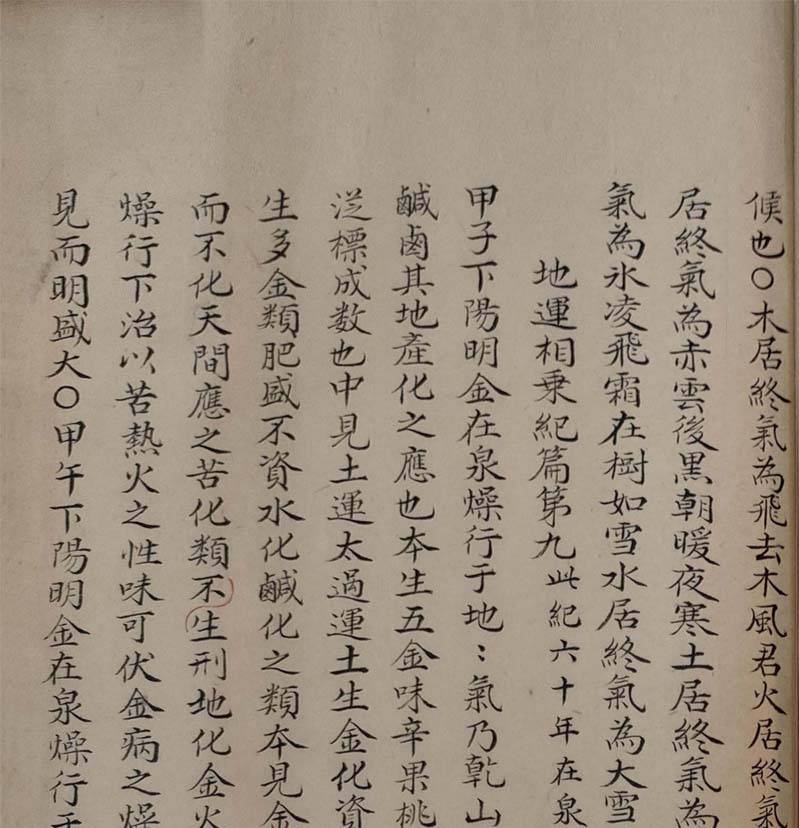 候也〇木居終氣為飛去木風君火居終氣
居終氣為赤雲後黑朝暖夜寒土居終氣為
氣為氷凌飛霜在樹如雪水居終氣為大雪
地運相乗紀篇第九此紀六十年在泉
甲子下陽明金在泉燥行于地〻氣乃乾山
鹹鹵其地產化之應也本生五金味辛果桃
泛標成数也中見土運太過運土生金化資
生多金類肥盛不資水化鹹化之類本見金
而不化天間應之苦化類不生刑地化金火
燥行下治以苦熱火之性味可伏金病之燥
見而明盛大〇甲午下陽明金在泉燥行于